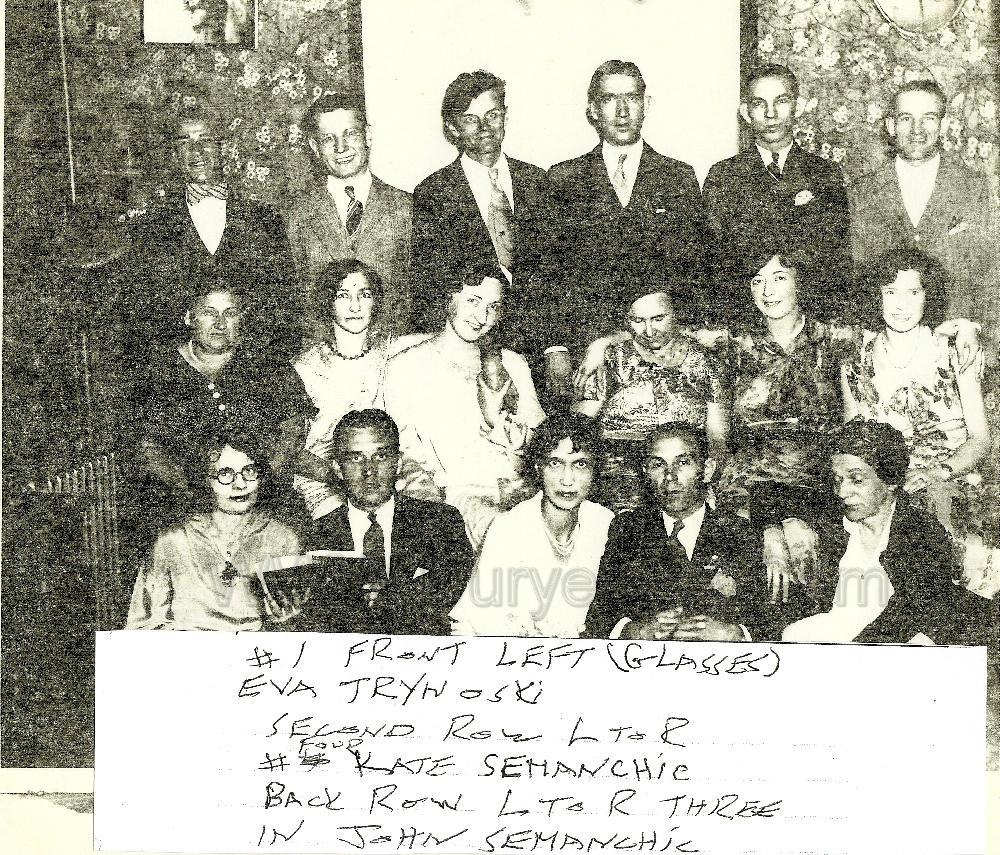 #1 FRONT LEFT (GLASSES)
EVA TRYNOSKI
SECOND ROW L TO R
FOUR
# KATE SEMANCHIC
BACK ROW L TO R THREE
IN JOHN SEMANCHIC